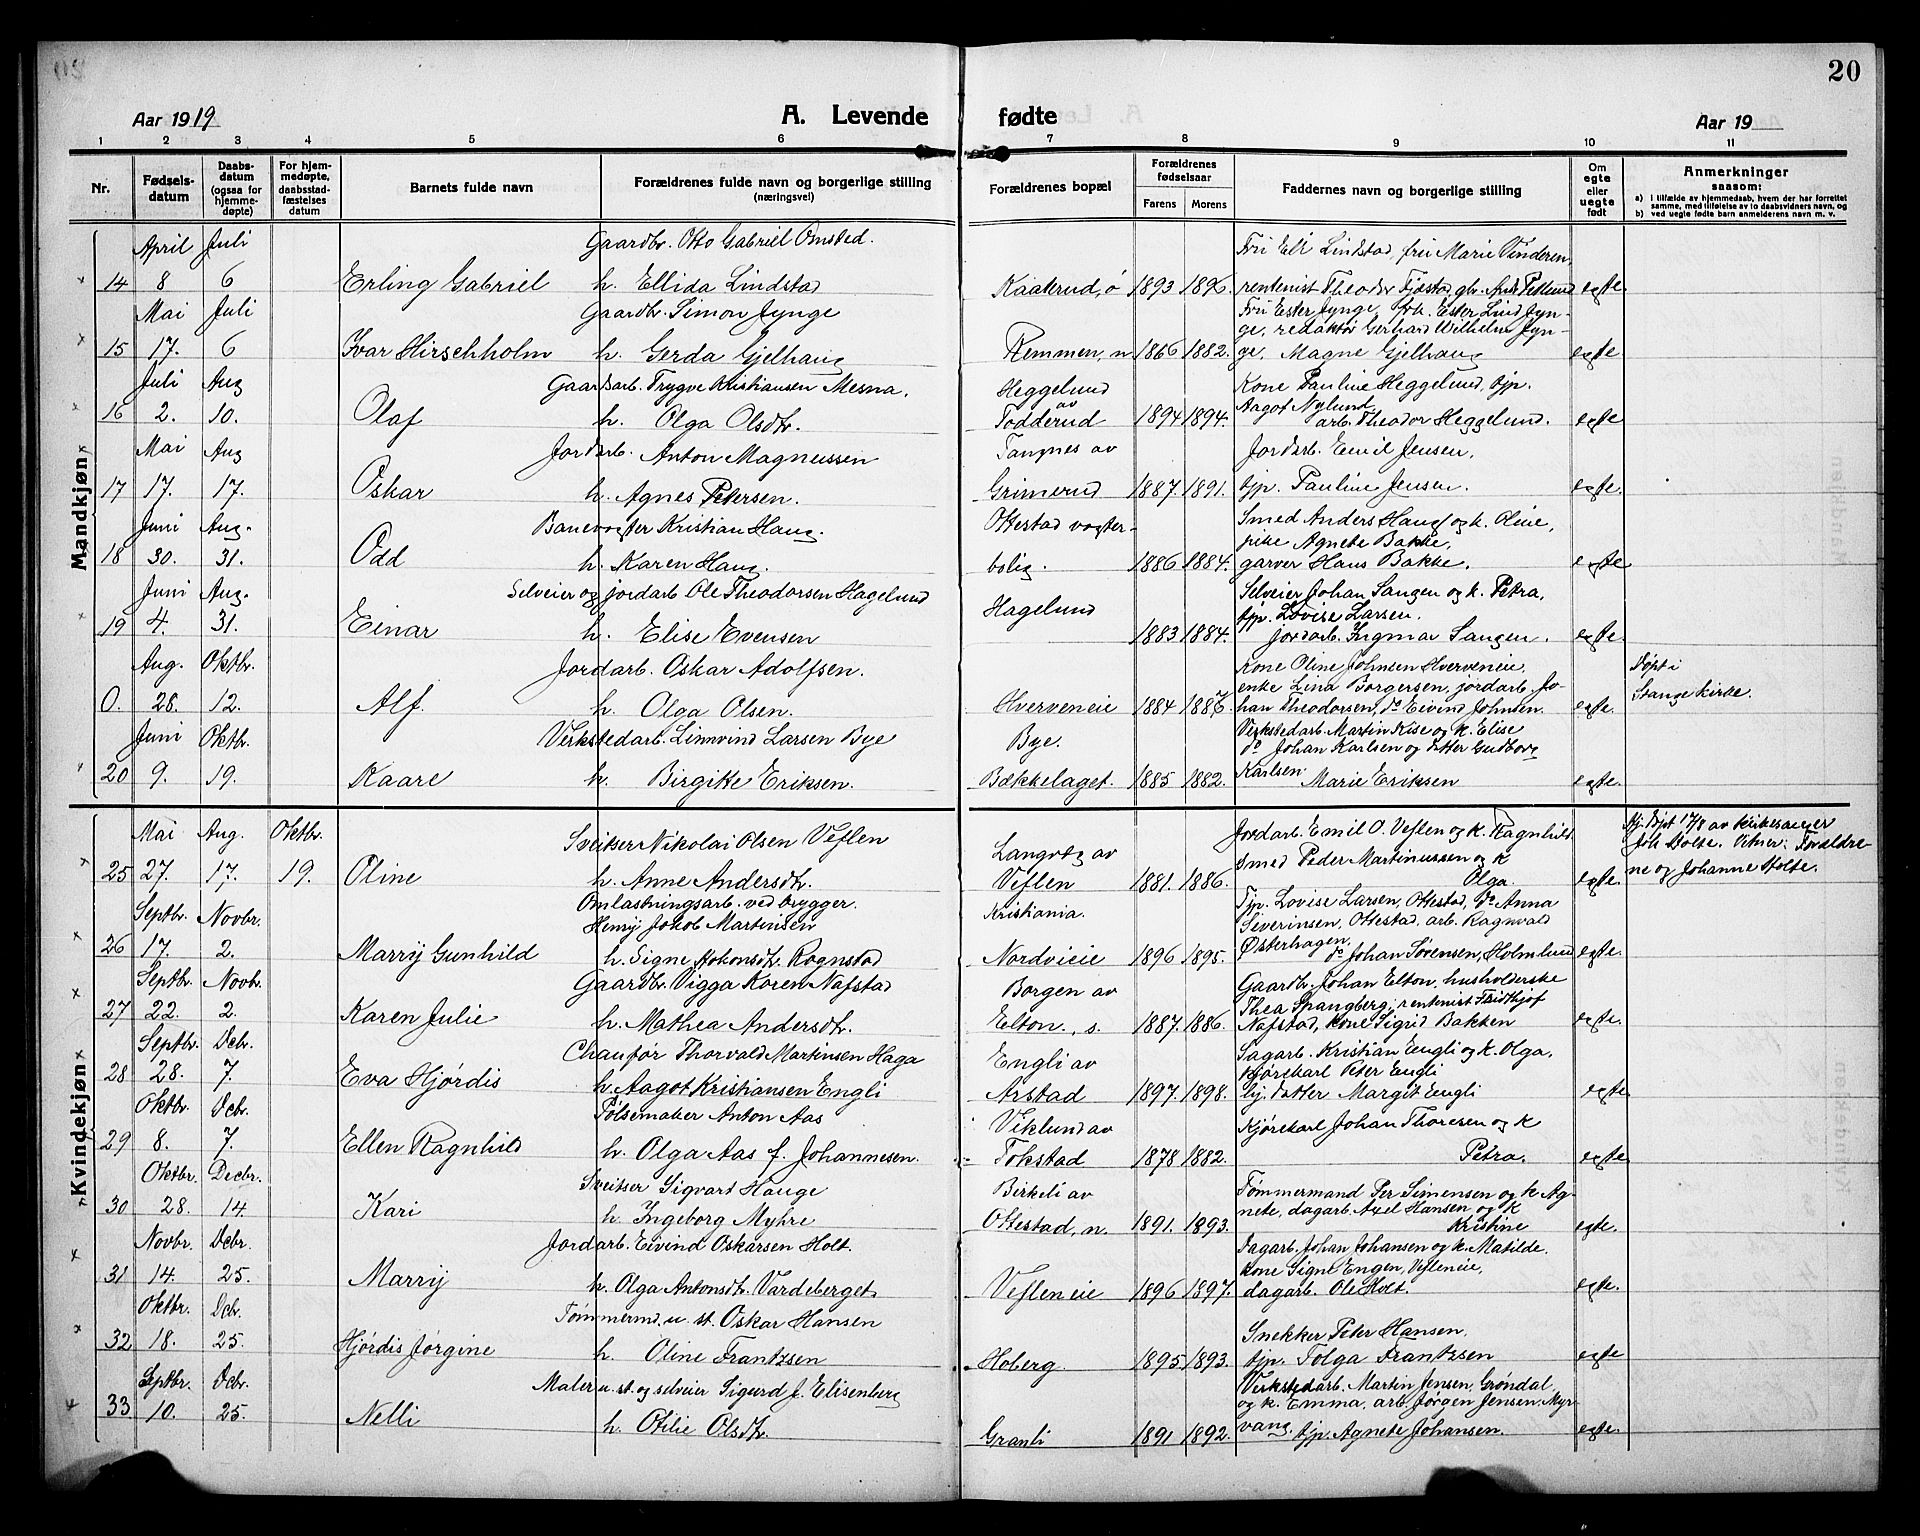 20
Aar 1919
A. Levende
fødte
Aar 19
1 2 3 4 5 6 7 8 9 10 11
Nr.
Fødsels-
datum
Daabs-
datum
(ogsaa for
hjemme-
døpte)
For hjem-
medøpte,
daabsstad-
fæstelses
datum
Barnets fulde navn
Forældrenes fulde navn og borgerlige stilling
(næringsvei)
Forældrenes bopæl
Forældrenes
fødselsaar
Farens Morens
Faddernes navn og borgerlige stilling
Om
egte
eller
uegte
født
Anmerkninger
saasom:
a) i tilfælde av hjemmedaab, hvem der har forrettet
samme, med tilføielse av to daabsvidners navn, og
b) ved uegte fødte barn anmelderens navn m. v.
Mandkjøn
April Juli Gaardbr. Otto Gabriel Omsted. Fru Ell Lindstad, fru Marie Vinderen,
14 8 6 Erling Gabriel h. Ellida Lindstad Kaaterud, ø 1893 1896. rentenist Theodor Fjæstad, gbr. Petlund egte.
Mai Juli Gaardbr. Simon Jynge Fru Ester Jynge, frk. Ester Lind Jyn-
ge, redaktør Gerhard Wilhelm Jyn-
15 17. 6 Ivar Hirschholm h. Gerda Gjelhaug Remmen, n. 1866 1882. ge, Magne Gjelhaug egte
Juli Aug Gaardbarb. Trygve Kristiansen Mesna. Heggelund Kone Pauline Heggelund, tjp.
av Aagot Nylund
16 2. 10. Olaf h. Olga Olsdtr. Todderud 1894 1894. arb. Theodor Heggelund. egte
Mai Aug Jordarb. Anton Magnussen Tangnes av Jordarb. Emil Jensen,
17 17. 17. Oskar h. Agnes Petersen. Grimerud 1887. 1891. tjp. Pauline Jensen. egte.
Juni Aug. Banevogter Kristian Haug. Ottestad vogter- Smed Anders Haug og k. Oline,
pike Agnete Bakke,
18 30. 31. Odd h. Karen Haug. bolig. 1886 1884. garver Hans Bakke. egte
Juni Aug. Selveier og jordarb Ole Theodorsen Hagelund Hagelund Selveier Johan Sangen og k. Petra,
tjp. Lovise Larsen,
19 4. 31. Einar h. Elise Evensen 1883 1884. jordarb. Ingmar Sangen. egte.
Aug. Oktbr. Jordarb. Oskar Adolfsen. Kone Oline Johnsen Hverveneie, Døpt i
enke Lina Borgersen, jordarb. Jo- Stange kirke.
0. 28. 12. Alf. h. Olga Olsen. Hverveneie 1884 1886 han Theodorsen, do Eivind Johnsen egte.
Juni Oktbr. Verkstedarb. Linnvind Larsen Bye Bye. Verkstedarb. Martin Kise og k. Elise
do Johan Karlsen og datter Gudborg
20 9. 19. Kaare h. Birgitte Eriksen. Bækkelaget. 1885 1882. Karlsen Marie Eriksen egte.
Kvindekjøn
Mai Aug. Oktbr. Sveitser Nikolai Olsen Veflen Langvtg av Jordarb. Emil O. Veflen og k. Ragnhild Hj. døpt 17/8 av kirkesanger
Smed Peder Martinussen og k Joh. Holte. Vitner: Forældre-
25 27. 17. 19. Oline h. Anne Andersdtr. Veflen 1881. 1886. Olga. egte. ne og Johanne Holte.
Septbr. Novbr. Omlastningsarb. ved brygger. Kristiania. Tjp. Lovise Larsen, Ottestad, do Anna
Henry Jakob Martinsen Severinsen, Ottestad, arb. Ragnvald
26 17. 2. Marry Gunhild h. Signe Johansdtr. Rognstad Nordvieie 1896 1895. Østerhagen, do Johan Sørensen, Holmlund egte.
Septbr. Novbr. Gaardbr. Vigga Koren Nafstad Borgen av Gaardbr. Johan Elton, husholderske
Thea Spangberg, rentenist Fridthjof
27 22. 2. Karen Julie h. Mathea Andersdtr. Elton, s. 1887. 1886. Nafstad, kone Sigrid Bakken egte.
Septbr. Dcbr. Chauffør Thorvald Martinsen Haga Engli av Sagarb. Kristian Engli og k. Olga,
kjørekarl Peter Engli
28 28. 7. Eva Hjørdis h. Aagot Kristiansen Engli Arstad 1897. 1898. hj. datter Margit Engli egte.
Oktbr. Dcbr. Pølsemaker Anton Aas Viklund av Kjørekarl Johan Thoresen og k
29 8. 7. Ellen Ragnhild h. Olga Aas f. Johannesen. Tokstad 1878 1882. Petra. egte.
Oktbr. Decbr. Sveitser Sigvart Hauge Birkeli av Tømmermand Per Simensen og k Ag-
nete, dagarb. Axel Hansen og k
30 28. 14. Kari h. Ingeborg Myhre Ottestad, n. 1891. 1893. Kristine egte.
Novbr. Dcbr. Jordarb. Eivind Oskarsen Holt. Dagarb. Johan Johansen og k. Matilde.
kone Signe Engen, Vefleneie,
31 14. 25. Marry h. Olga Antonsdtr. Vardeberget Vefleneie 1896 1897. dagarb. Ole Holt. egte.
Oktbr. Dcbr. Tømmermd. u. st. Oskar Hansen Snekker Peter Hansen,
32 18. 25. Hjørdis Jørgine h. Oline Frantzsen Hoberg. 1895 1893. tjp. Tolga Frantzsen egte
Septbr. Dcbr. Maler u. st. og selveier Sigurd J. Elisenberg Verkstedarb. Martin Jensen, Grøndal,
og k. Emma, arb. Jørgen Jensen Myr-
33 10. 25. Nelli h. Otilie Olsdtr. Granli 1891 1892. vang, tjp. Agnete Johansen. egte.